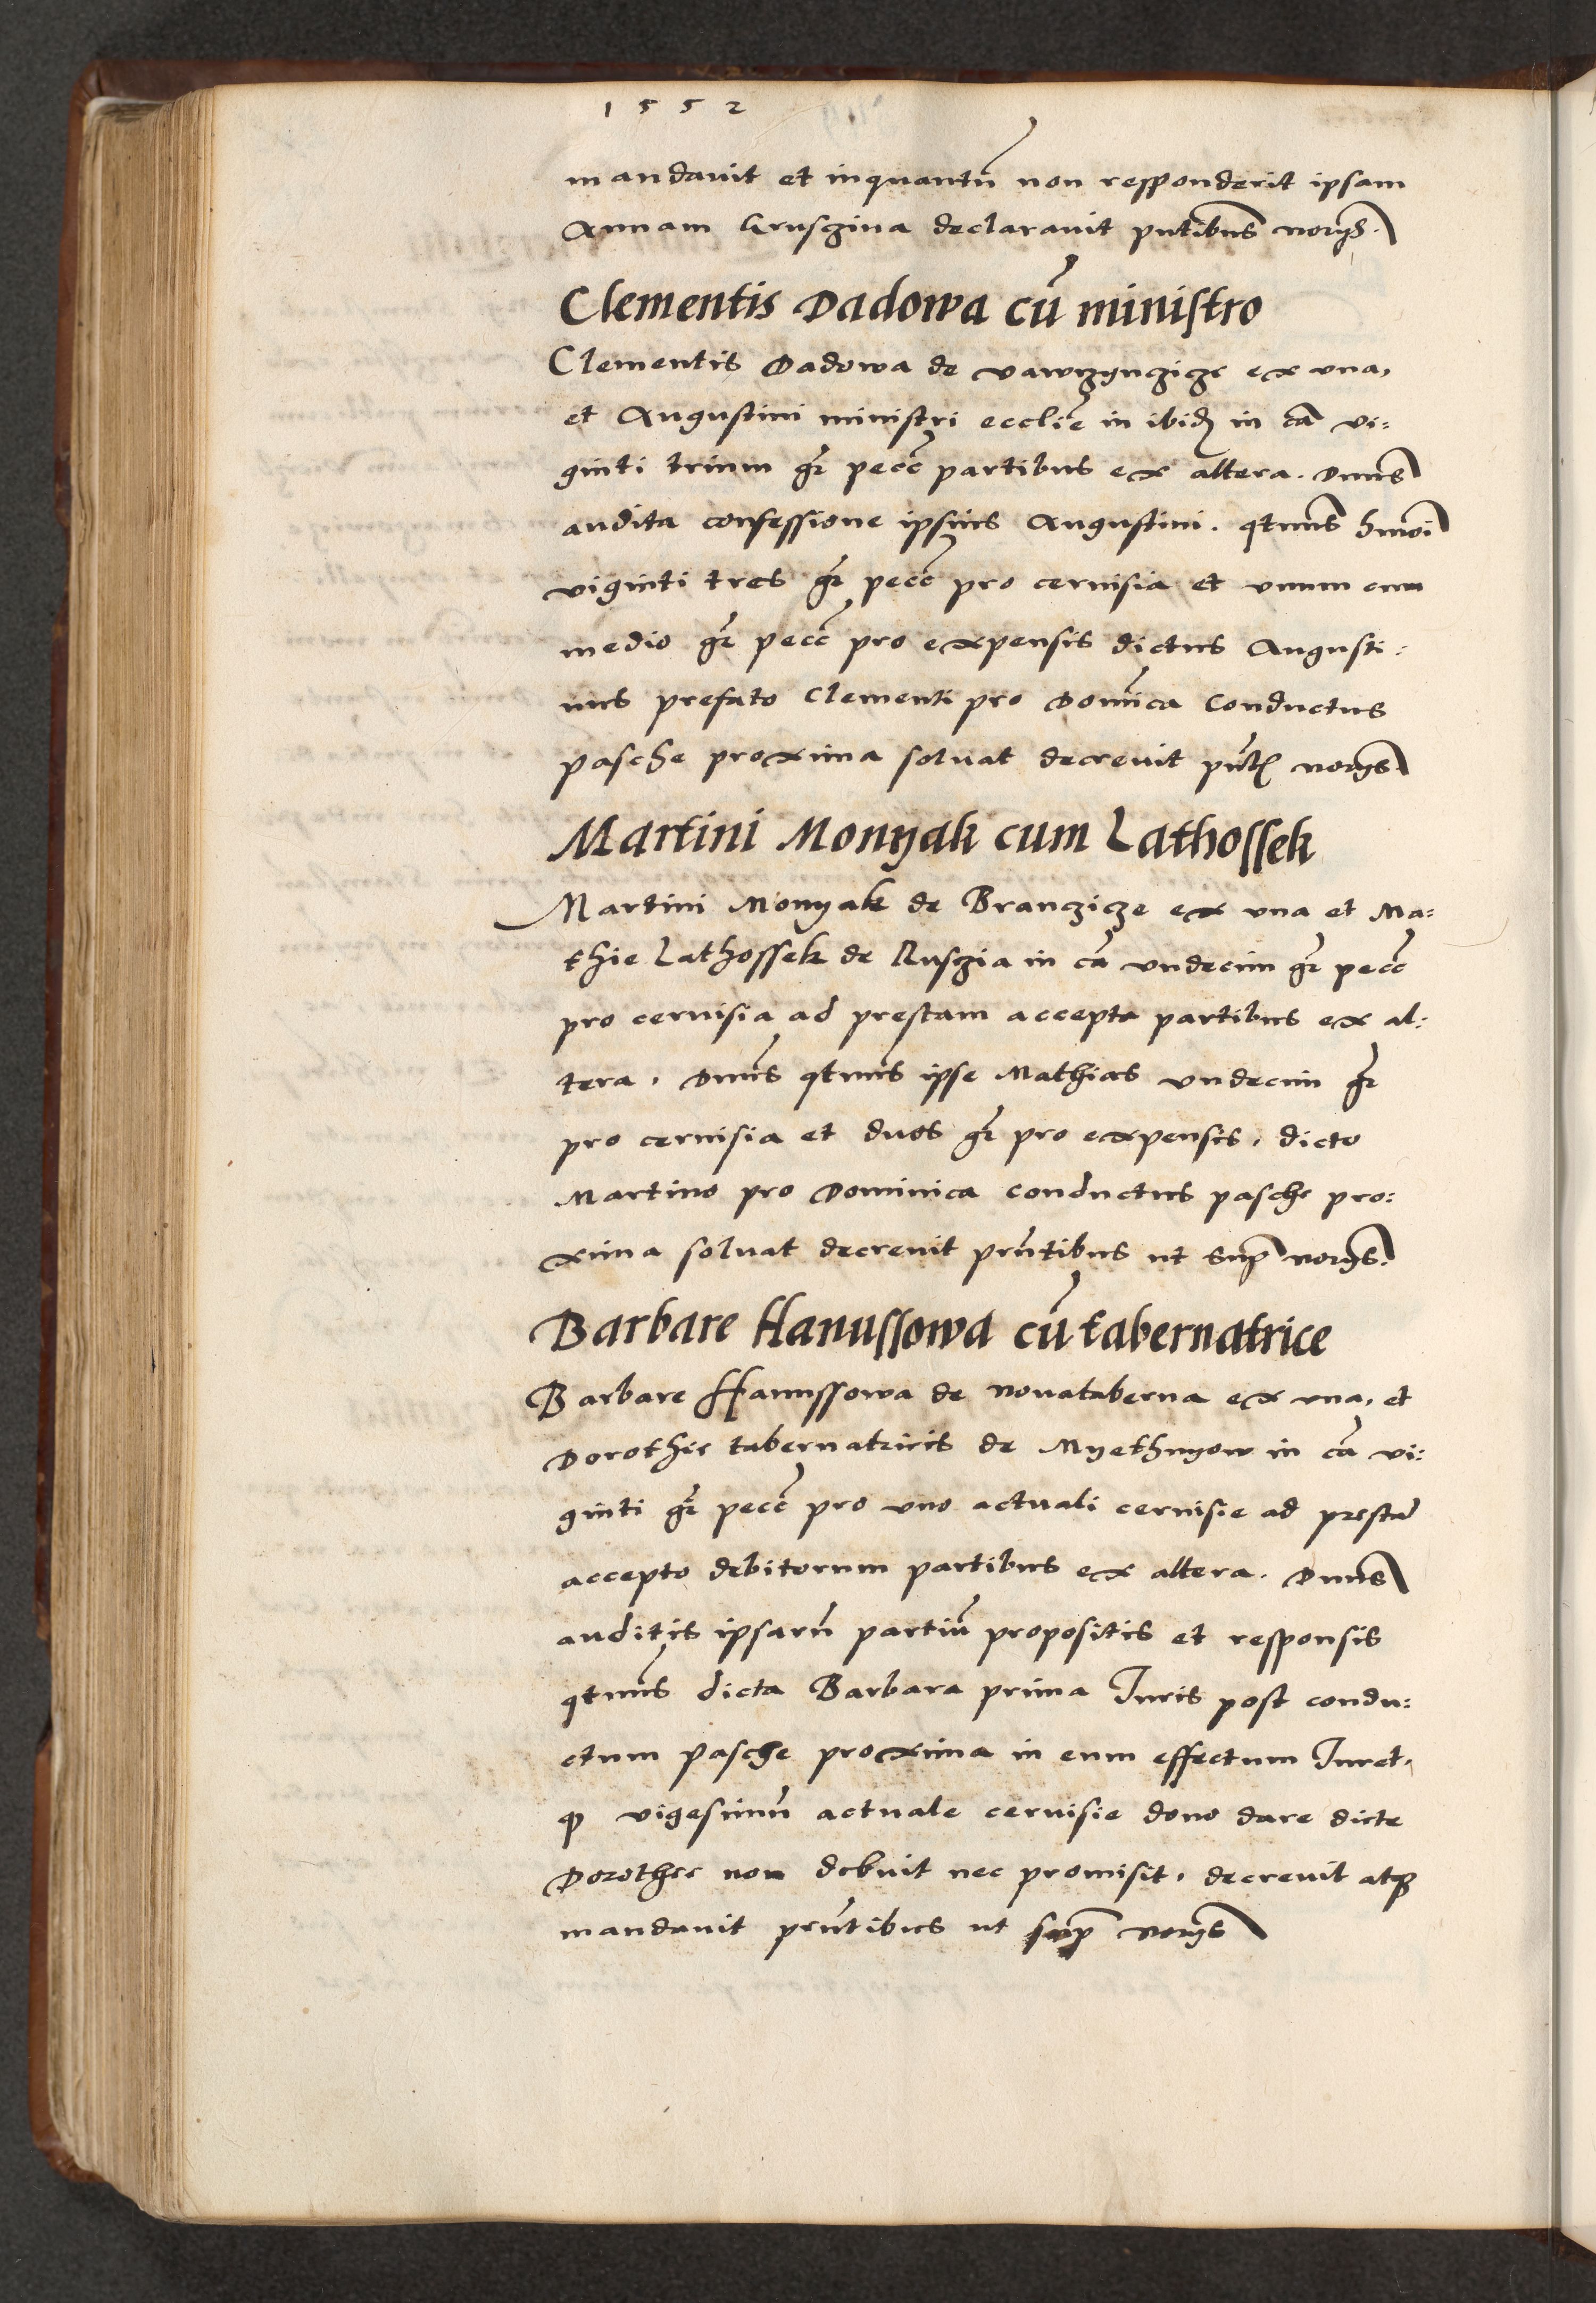 1552
mandauit et inquantū non responderit ipsam
Annam Gruszina declarauit pn̄tibus norijs.
Clementis Dadowa cū ministro
Clementis Dadowa de vawrzynczicze ex vna,
et Augustini ministri eccl̄ie in ibidē in cā vi:
ginti trium gr̄ pecc̄ partibus ex altera. Dnūs
audita confessione ipsius Augustini. qtnūs hmōi
viginti tres gr̄ pecc̄ pro ceruisia et vnum cum
medio gr̄ pecc̄ pro expensis dictus Augusti:
nus prefato Clementi pro Domīca Conductus
pasche proxima soluat decreuit pn̄t norijs
Martini Monyak cum Lathossek
Martini Monyak de Branczicze ex vna et Ma:
thie Lathossek de Ruszia in cā vndecim gr̄ pecc̄
pro ceruisia ad prestam accepta partibus ex al:
tera. Dnūs qtnūs ipse Mathias vndecim gr̄
pro ceruisia et duos gr̄ pro expensis, dicto
Martino pro Dominica conductus pasche pro:
xima soluat decreuit prn̄tibus ut sup norijs.
Barbare Hanussowa cū tabernatrice
Barbare Hanussowa de nouataberna ex vna, et
Dorothee tabernatricis de Myethnyow in cā vi:
ginti gr̄ pecc̄ pro vno actuali ceruisie ad prestā
accepto debitorum partibus ex altera. Dnūs
auditis ipsarū partiū propositis et responsis
qtnūs dicta Barbara prima Iuris post condu:
ctum Pasche proxima in eum effectum Iuret.
ꝙ vigesimū actuale ceruisie dono dare dicte
Dorothee non debuit nec promisit, decreuit atqꝫ
mandauit prn̄tibus ut sup norijs